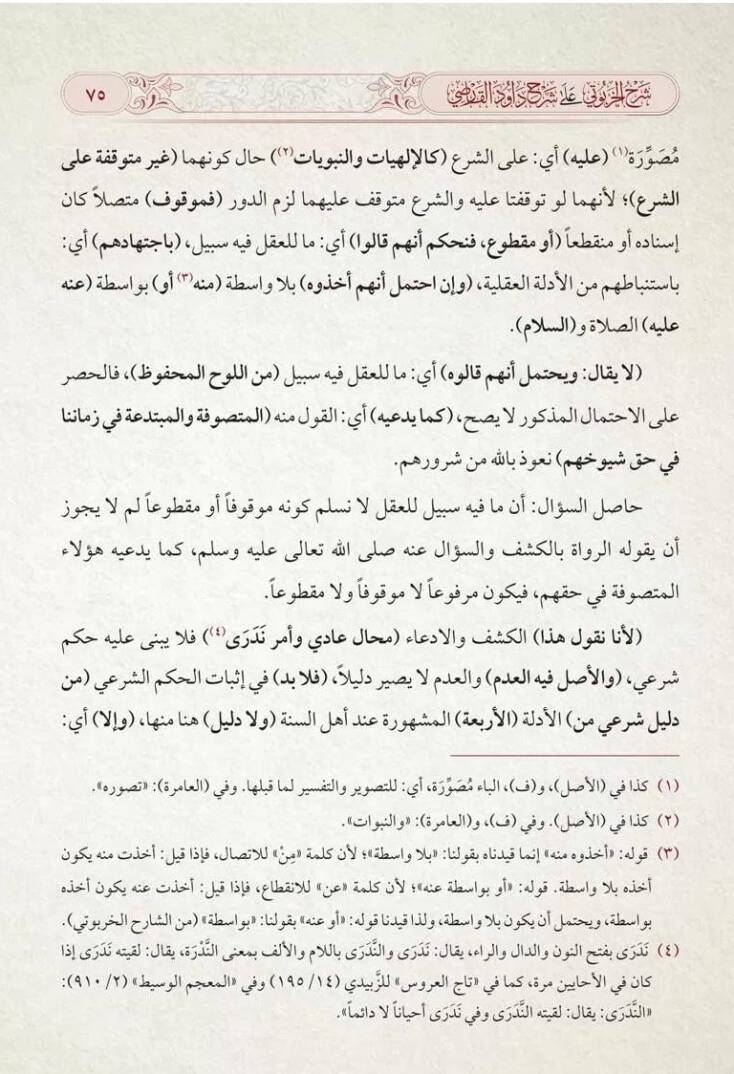 شَرْحُ الخَرْبُوتِي عَلَى شَرْحِ دَاوُدَ القَارْصِي
٧٥
مُصَوِّرَة(١) (عليه) أي: على الشرع (كالإلهيات والنبويات(٢)) حال كونهما (غير متوقفة على
الشرع)؛ لأنهما لو توقفتا عليه والشرع متوقف عليهما لزم الدور (فموقوف) متصلاً كان
إسناده أو منقطعاً (أو مقطوع، فنحكم أنهم قالوا) أي: ما للعقل فيه سبيل، (باجتهادهم) أي:
باستنباطهم من الأدلة العقلية، (وإن احتمل أنهم أخذوه) بلا واسطة (منه(٣) أو) بواسطة (عنه
عليه) الصلاة و(السلام).
(لا يقال: ويحتمل أنهم قالوه) أي: ما للعقل فيه سبيل (من اللوح المحفوظ)، فالحصر
على الاحتمال المذكور لا يصح، (كما يدعيه) أي: القول منه (المتصوفة والمبتدعة في زماننا
في حق شيوخهم) نعوذ بالله من شرورهم.
حاصل السؤال: أن ما فيه سبيل للعقل لا نسلم كونه موقوفاً أو مقطوعاً لم لا يجوز
أن يقوله الرواة بالكشف والسؤال عنه صلى الله تعالى عليه وسلم، كما يدعيه هؤلاء
المتصوفة في حقهم، فيكون مرفوعاً لا موقوفاً ولا مقطوعاً.
(لأنا نقول هذا) الكشف والادعاء (محال عادي وأمر نَدَرَى(٤)) فلا يبنى عليه حكم
شرعي، (والأصل فيه العدم) والعدم لا يصير دليلاً، (فلا بد) في إثبات الحكم الشرعي (من
دليل شرعي من) الأدلة (الأربعة) المشهورة عند أهل السنة (ولا دليل) هنا منها، (وإلا) أي:
(١) كذا في (الأصل)، و(ف)، الباء مُصَوِّرَة، أي: للتصوير والتفسير لما قبلها. وفي (العامرة): «تصوره».
(٢) كذا في (الأصل). وفي (ف)، و(العامرة): «والنبوات».
(٣) قوله: «أخذوه منه» إنما قيدناه بقولنا: «بلا واسطة»؛ لأن كلمة «مِنْ» للاتصال، فإذا قيل: أخذت منه يكون
أخذه بلا واسطة. قوله: «أو بواسطة عنه»؛ لأن كلمة «عن» للانقطاع، فإذا قيل: أخذت عنه يكون أخذه
بواسطة، ويحتمل أن يكون بلا واسطة، ولذا قيدنا قوله: «أو عنه» بقولنا: «بواسطة» (من الشارح الخربوتي).
(٤) نَدَرَى بفتح النون والدال والراء، يقال: نَدَرَى والنَّدَرَى باللام والألف بمعنى النَّدْرَة، يقال: لقيته نَدَرَى إذا
كان في الأحايين مرة، كما في «تاج العروس» للزَّبيدي (١٤/ ١٩٥) وفي «المعجم الوسيط» (٢/ ٩١٠):
«النَّدَرَى: يقال: لقيته النَّدَرَى وفي نَدَرَى أحياناً لا دائماً».